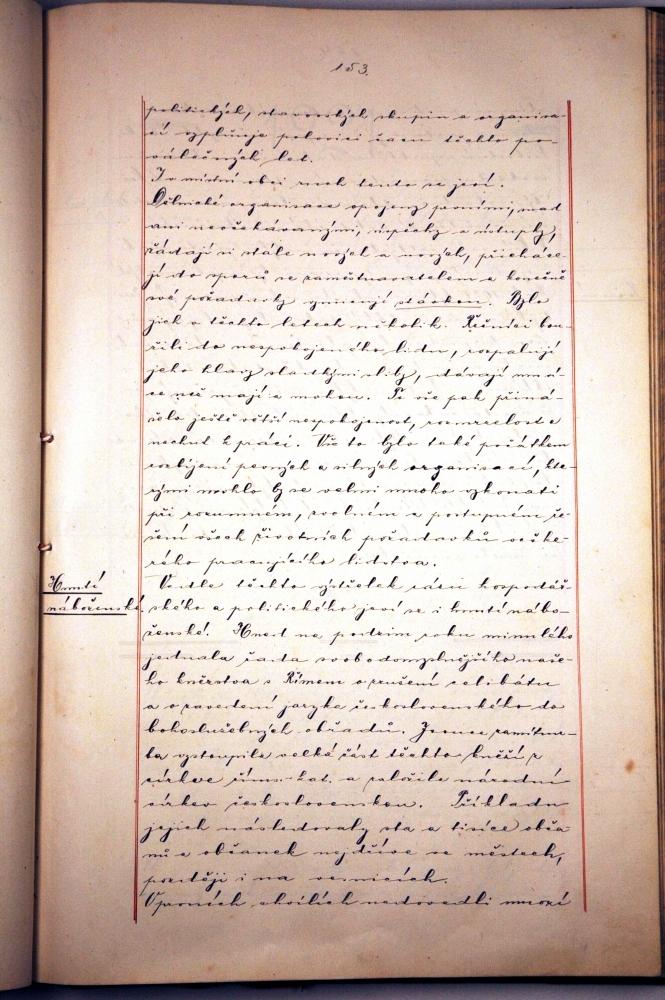 153.
politických, stavovských skupin a organisa-
cí vyplňuje polovici času těchto po-
válečných let.
I v místní obci ruch tento se jeví.
Dělnické organisace spojeny prvními, snad
ani neočekávanými, úspěchy a ústupky,
žádají si stále nových a nových, přicháze-
jí do sporů se zaměstnavatelem a konečně
své požadavky vynucují stávkou. Bylo
jich v těchto letech několik. Řečníci bou-
řili do nespokojeného lidu, rozpalují
jeho hlavy sladkými sliby, dávají mu ví-
ce než mají a mohou. To vše pak přiná-
šelo ještě větší nespokojenost, rozmrzelost a
nechuť k práci. Vše to bylo také počátkem
rozbíjení pevných a silných organisací, kte-
rými mohlo by se velmi mnoho vykonati
při rozumném, zvolném a postupném ře-
šení všech životních požadavků veške-
rého pracujícího lidstva.
Hnutí
náboženské.
Vedle těchto výstřelek rázu hospodář-
ského a politického jeví se i hnutí nábo-
ženské. Hned na podzim roku minulého
jednala řada svobodomyslnějšího naše-
ho kněžstva s Římem o zrušení celibátu
a o zavedení jazyka československého do
bohoslužebných obřadů. Jsouc zamítnu-
ta vystoupila velká část těchto kněží z
církve řím.-kat. a založila národní
církev československou. Příkladu
jejich následovaly sta a tisíce obča
nů a občanek nejdříve ve městech,
později i na vesnicích.
V prvních chvílích nedovedli mnozí